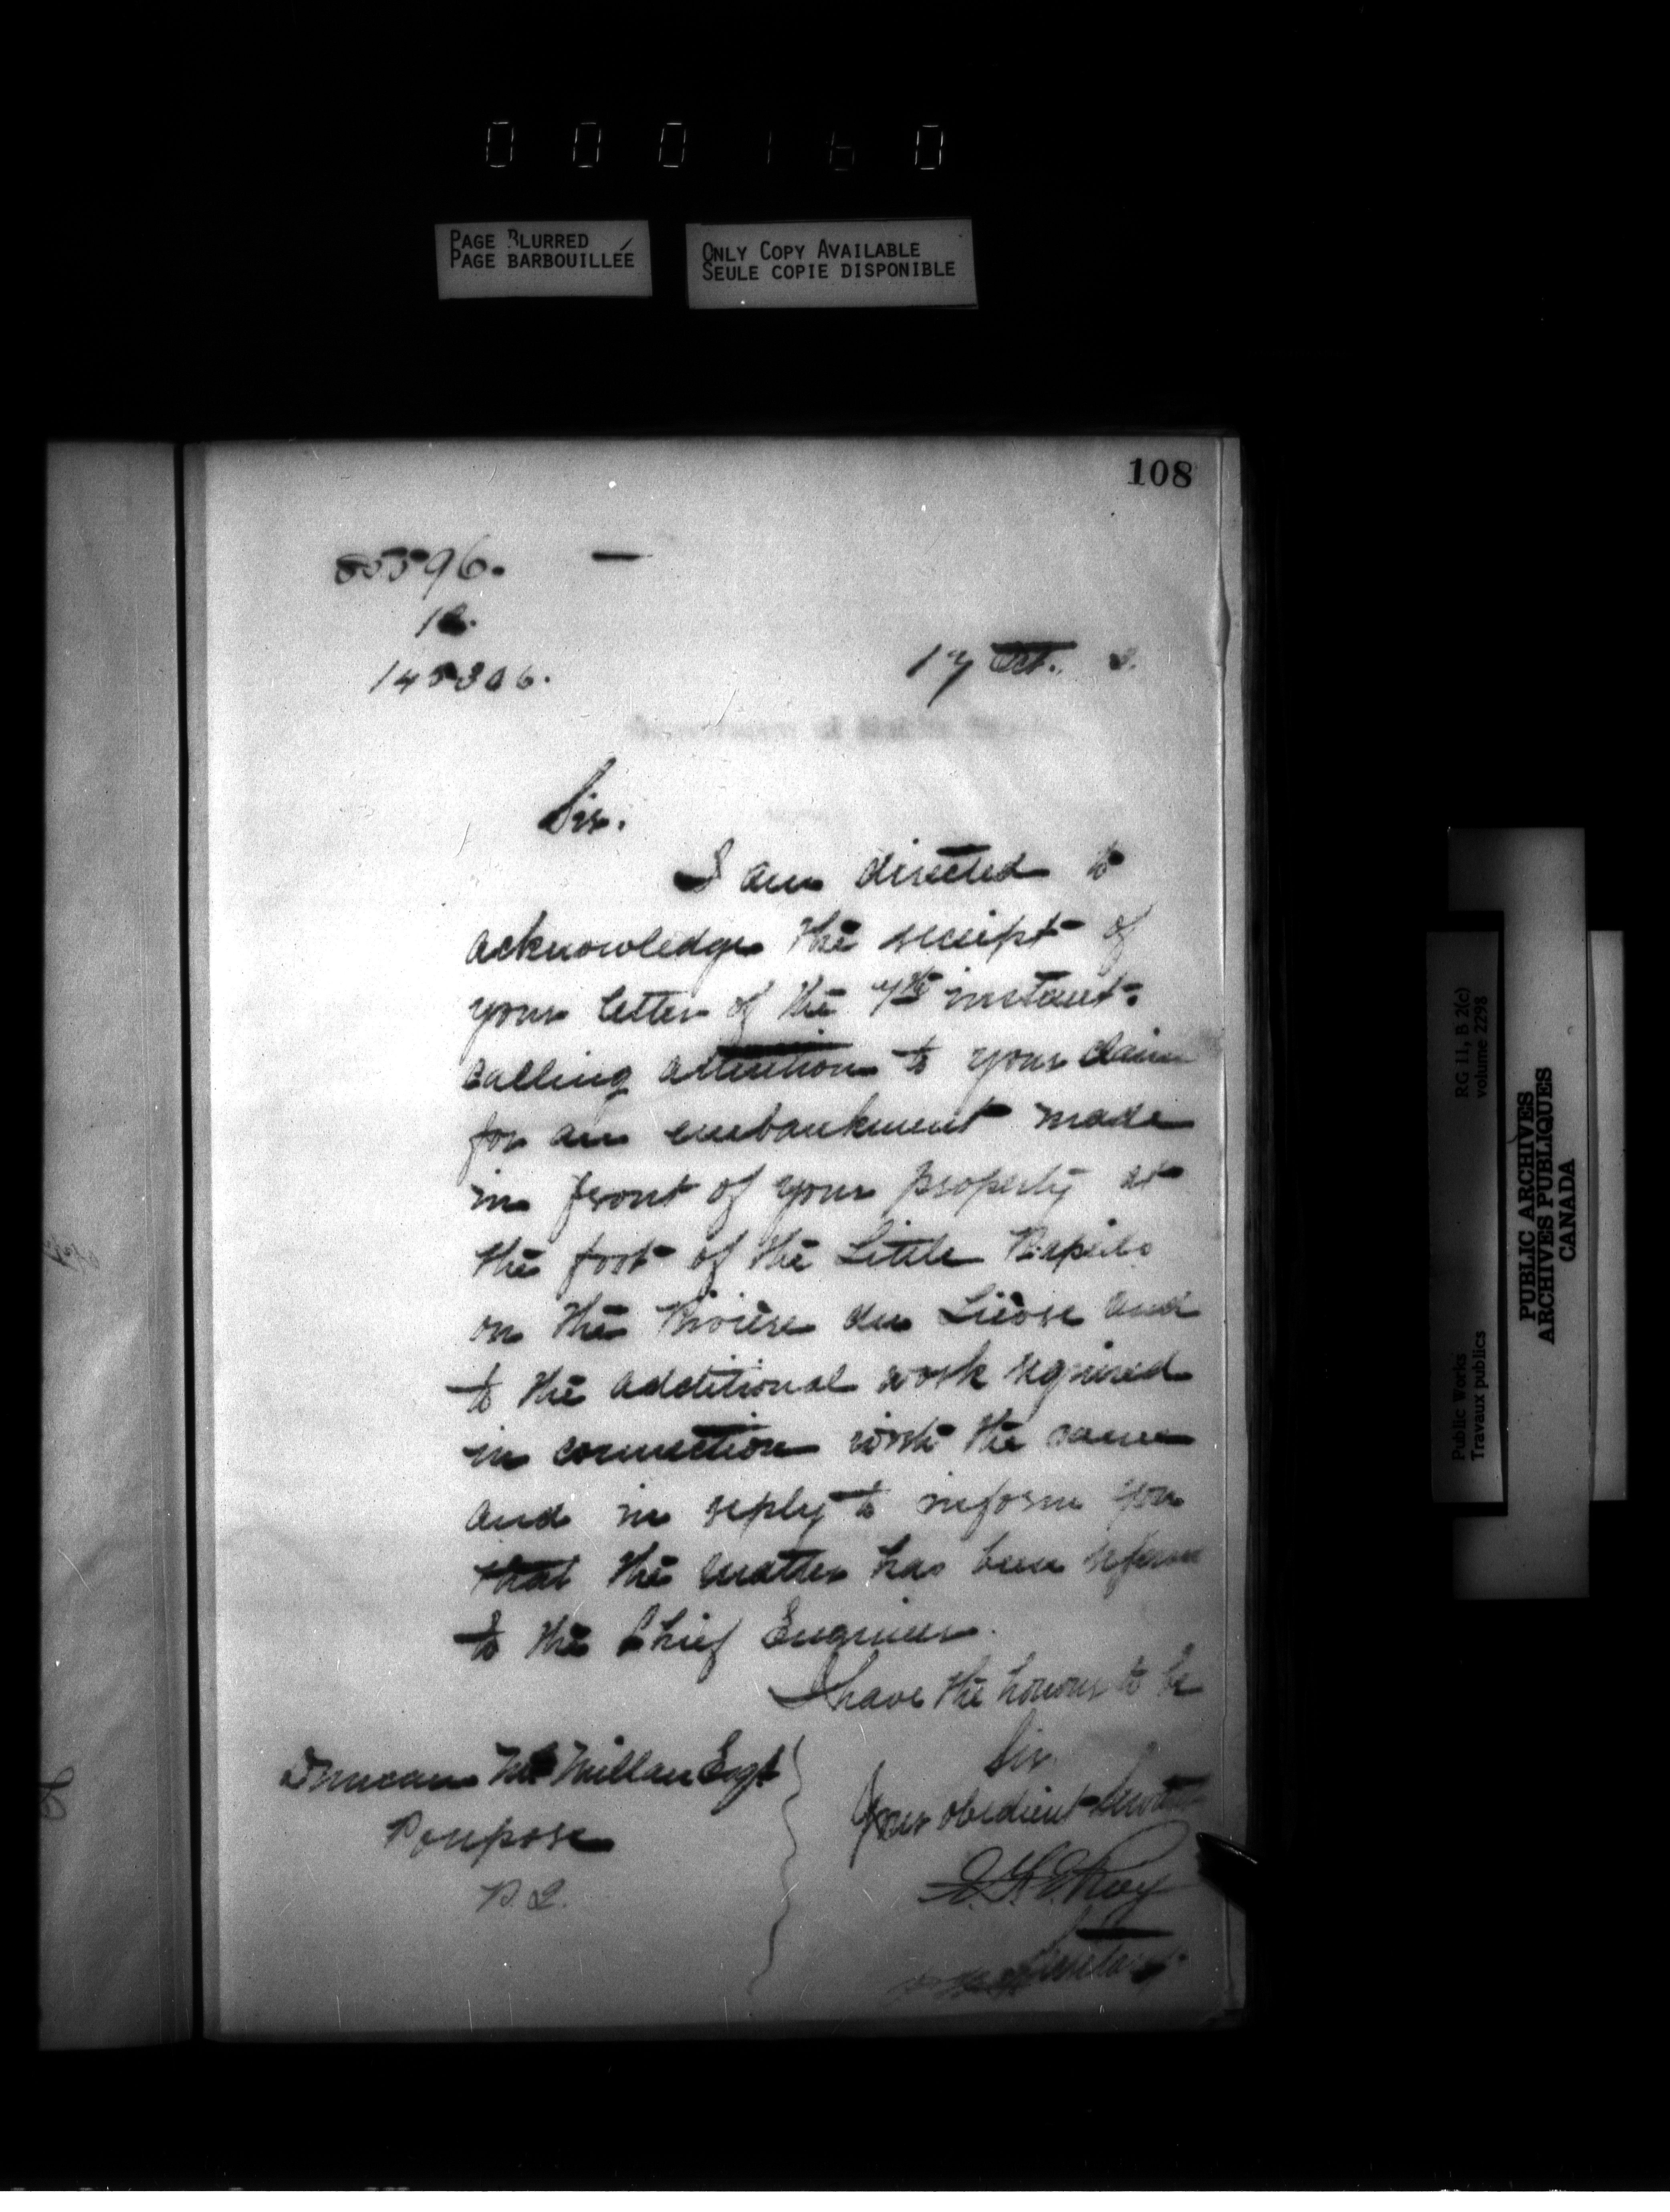 0 0 0 1 6 0
PAGE BLURRED
PAGE BARBOUILLÉE
ONLY COPY AVAILABLE
SEULE COPIE DISPONIBLE
108
85596.
145306.
17 Oct.
Sir.
I am directed to
acknowledge the receipt of
your letter of the 7th instant.
calling attention to your claim
for an embankment made
in front of your property at
the foot of the Little Rapids
on the Rivière du Lièvre and
to the additional work required
in connection with the same
and in reply to inform you
that the matter has been
to the Chief Engineer.
I have the honour to be
Sir
Your obedient Servant
Duncan McMillan Esqr
Poupore
P.Q.
Roy
Secretary.
RG 11, B 2(c)
volume 2298
Public Works
Travaux publics
PUBLIC ARCHIVES
ARCHIVES PUBLIQUES
CANADA